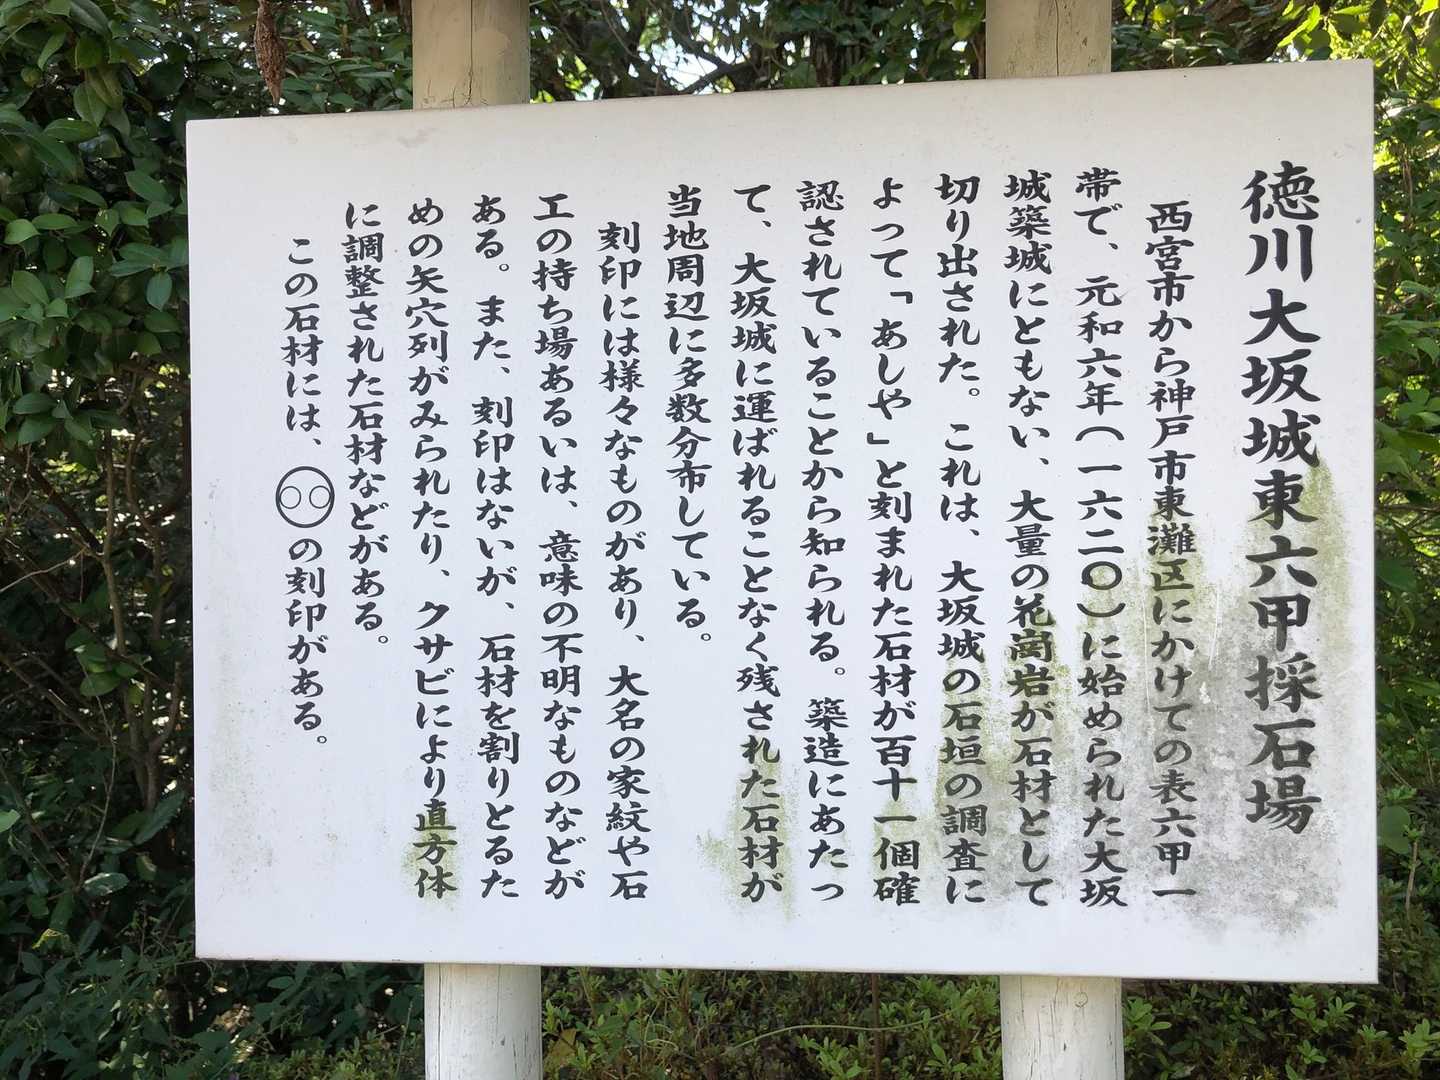 徳川大坂城東六甲採石場
西宮市から神戸市東灘区にかけての表六甲一
帯で、元和六年(一六二〇)に始められた大坂
城築城にともない、大量の花崗岩が石材として
切り出された。これは、大坂城の石垣の調査に
よって「あしや」と刻まれた石材が百十一個確
認されていることから知られる。築造にあたっ
て、大坂城に運ばれることなく残された石材が
当地周辺に多数分布している。
刻印には様々なものがあり、大名の家紋や石
工の持ち場あるいは、意味の不明なものなどが
ある。また、刻印はないが、石材を割りとるた
めの矢穴列がみられたり、クサビにより直方体
に調整された石材などがある。
この石材には、の刻印がある。